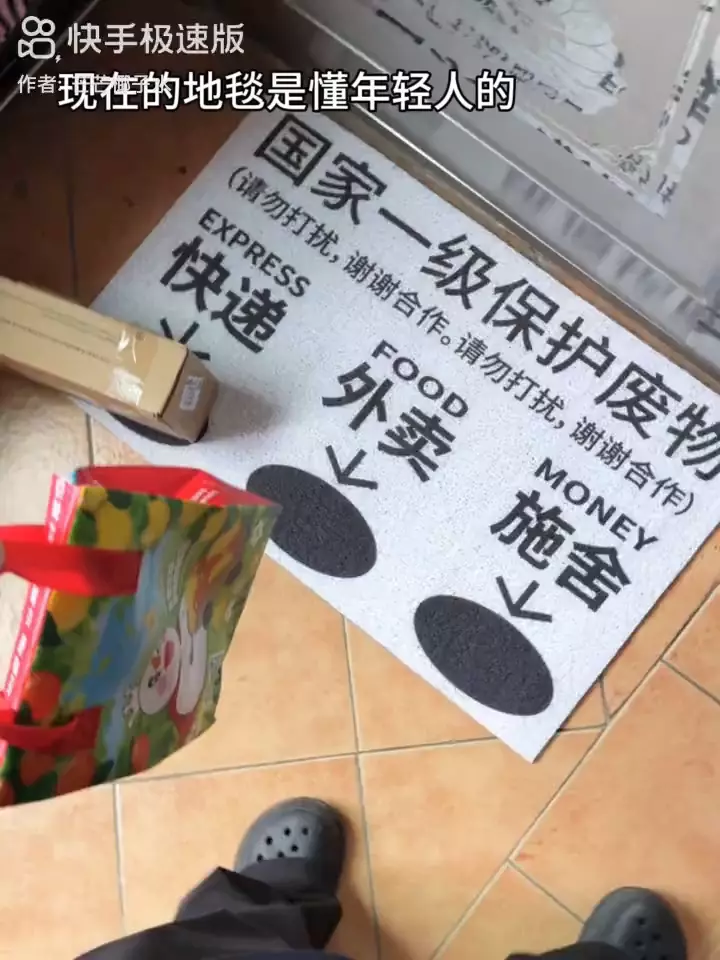 快手极速版
现在的地毯是懂年轻人的
国家一级保护废物
(请勿打扰,谢谢合作。请勿打扰,谢谢合作)
EXPRESS
快递
FOOD
外卖
MONEY
施舍